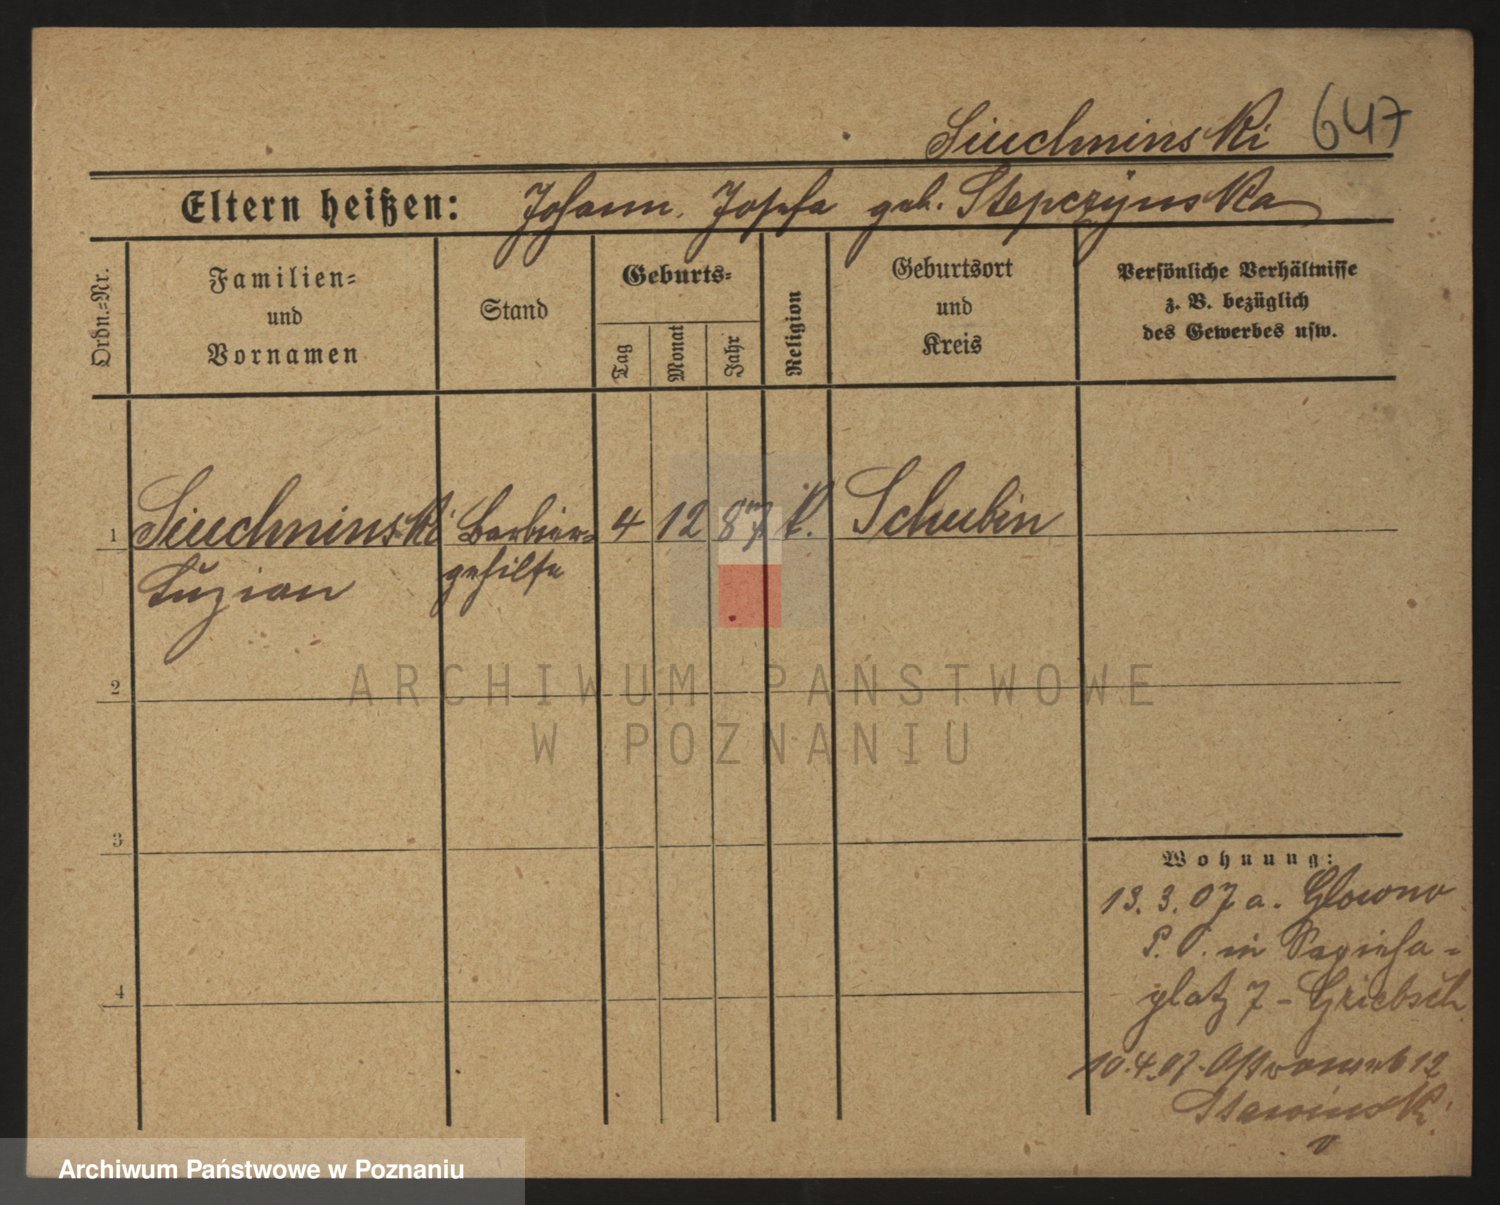 Siuchninski 647
Eltern heißen: Johann. Josefa geb. Stepczÿnska
Ordn.-Nr.
Familien-
und
Vornamen
Stand
Geburts-
Tag
Monat
Jahr
Religion
Geburtsort
und
Kreis
Persönliche Verhältnisse
z. B. bezüglich
des Gewerbes usw.
1 Siuchninski Barbier- 4 12 87 k. Schubin
Luzian gehilfe
2
3
4
Wohnung:
13. 3. 07 a. Glowno
P. O. in Sapieha-
platz 7 - Griebsch
10. 4. 07. 12
Stawinski
ARCHIWUM PAŃSTWOWE
W POZNANIU
Archiwum Państwowe w Poznaniu